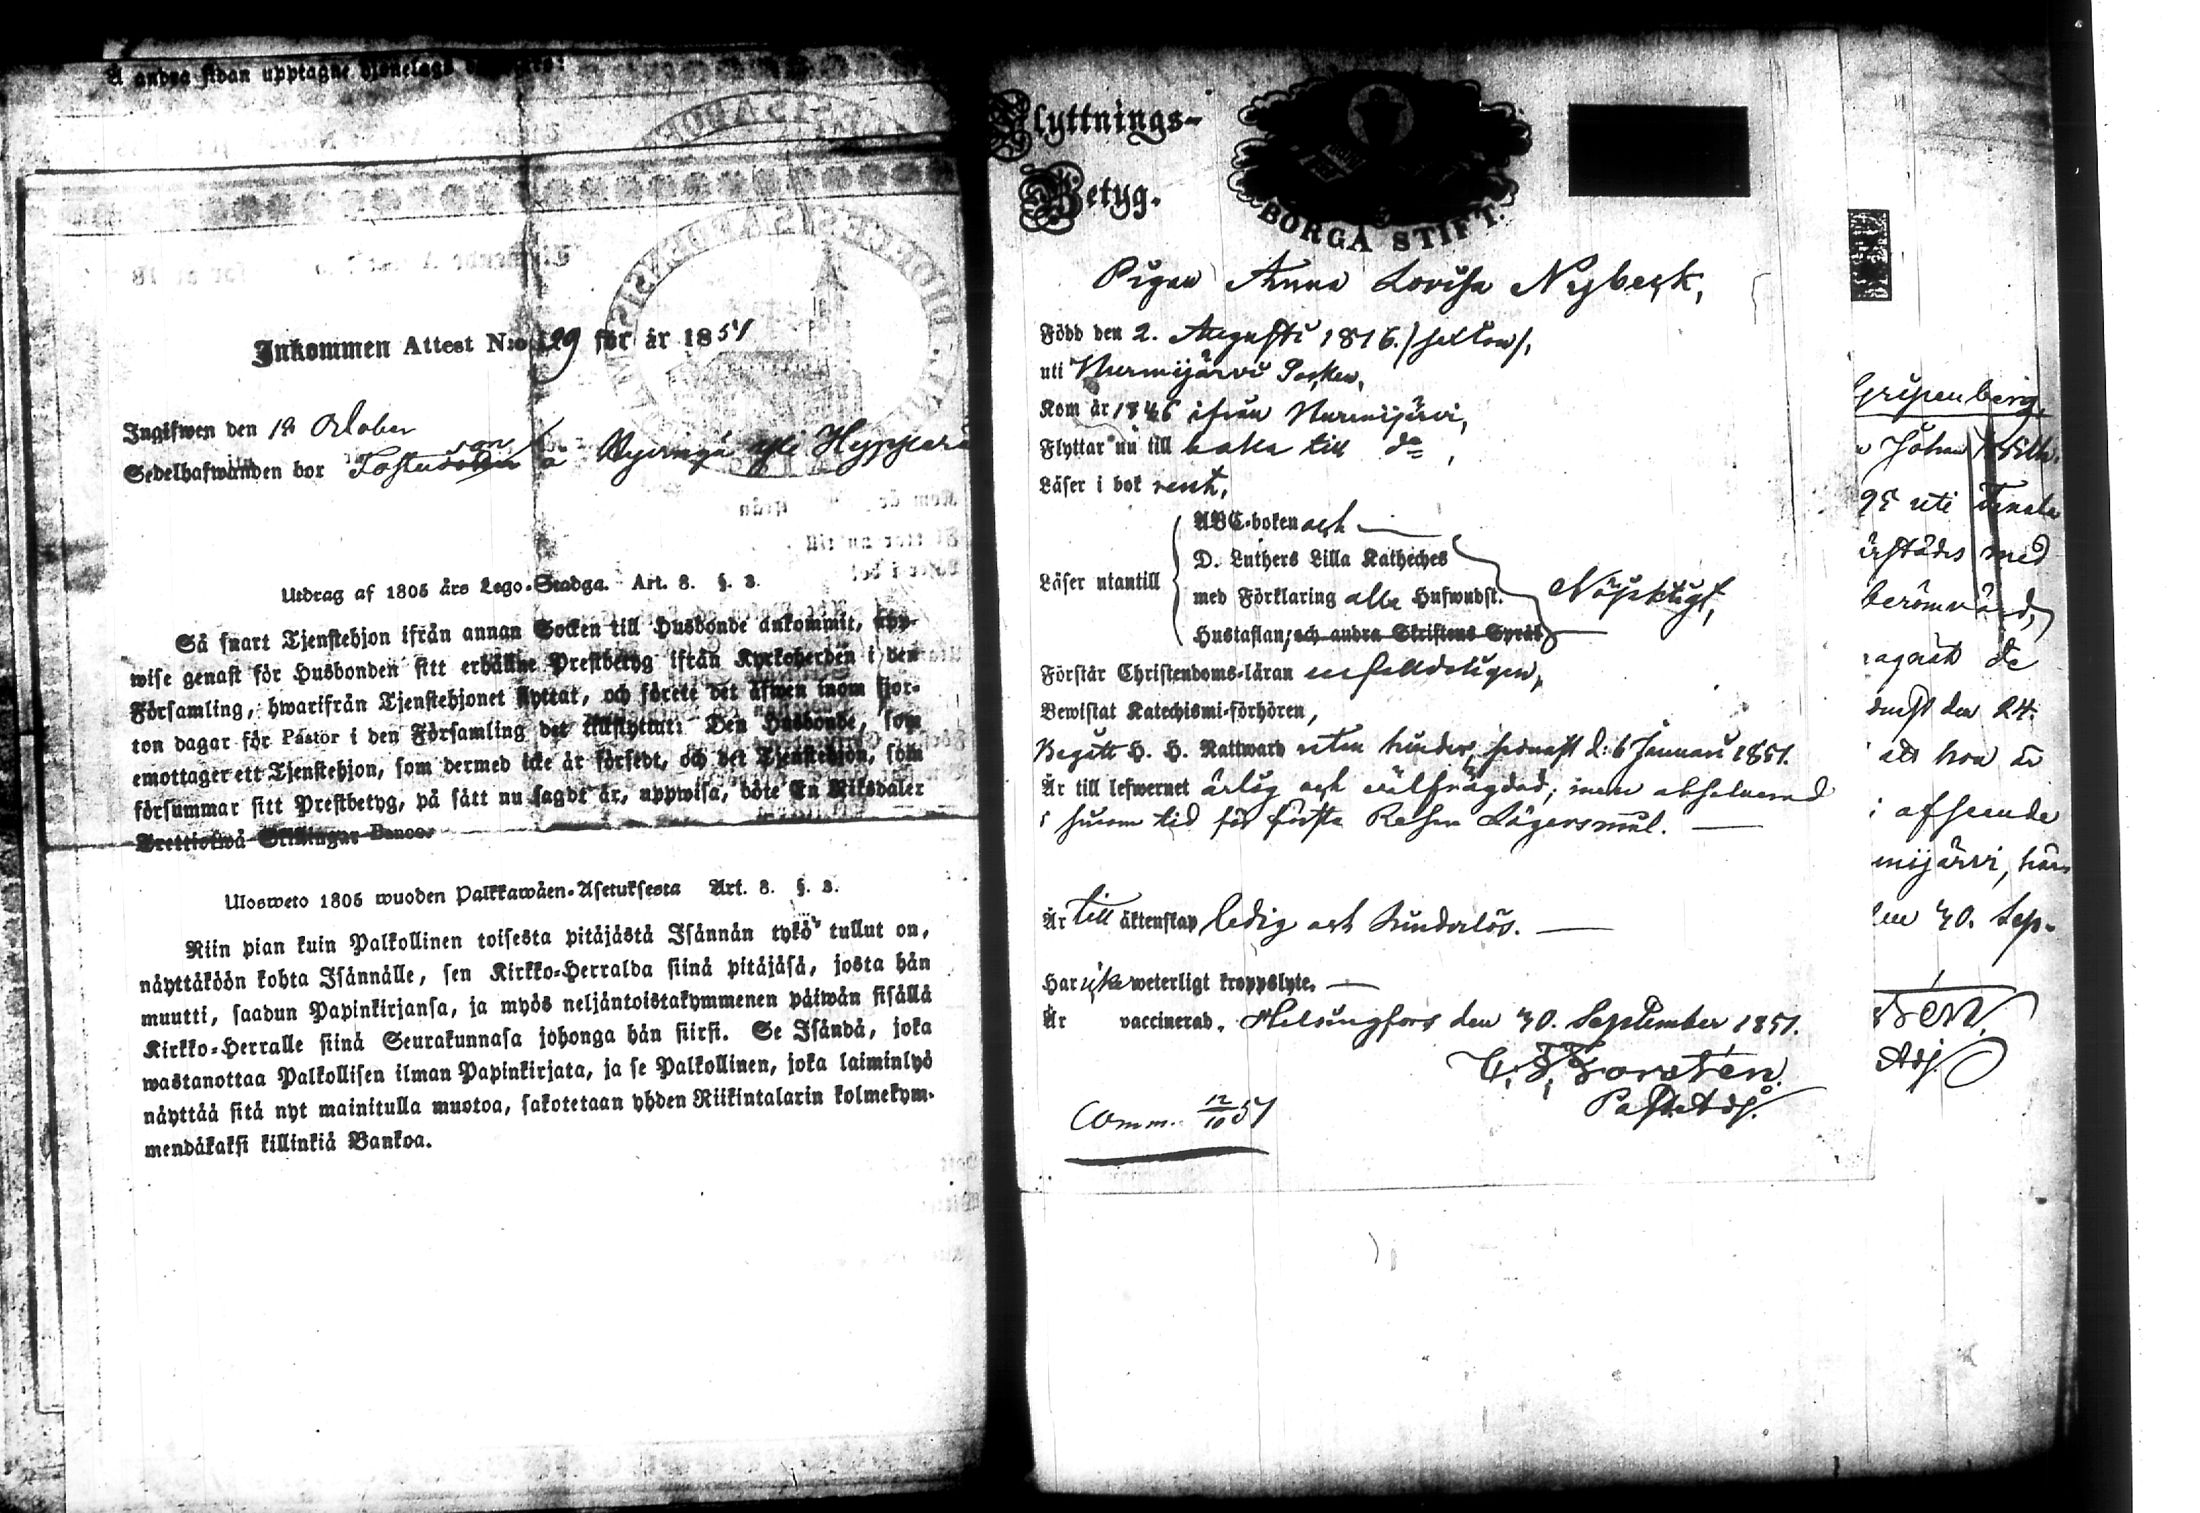 Å andra sidan upptagne
Inkommen Attest N:o 129 för år 1851
Ingifwen den 12 October
Sedelhafwanden bor å
Utdrag af 1805 års Lego-Stadga. Art. 8. §. 3.
Så snart Tjenstehjon ifrån annan Socken till Husbonde ankommit, upp-
wise genast för Husbonden sitt erhållne Prestbetyg ifrån Kyrkoherden i den
Församling, hwarifrån Tjenstehjonet flyttat, och förete det äfwen inom fjor-
ton dagar för Pastor i den Församling det tillflyttat. Den Husbonde, som
emottager ett Tjenstehjon, som dermed icke är försedt, och det Tjenstehjon, som
försummar sitt Prestbetyg, på sätt nu sagdt är, uppwisa, böte En Riksdaler
Trettiotwå Skillingar Banco.
Ulosweto 1805 wuoden Palkkawäen-Asetuksesta Art. 8. §. 3.
Niin pian kuin Palkollinen toisesta pitäjästä Isännän tykö tullut on,
näyttäköön kohta Isännälle, sen Kirkko-Herralda siinä pitäjäsä, josta hän
muutti, saadun Papinkirjansa, ja myös neljäntoistakymmenen päiwän sisällä
Kirkko-Herralle siinä Seurakunnasa johonga hän siirsi. Se Isändä, joka
wastanottaa Palkollisen ilman Papinkirjata, ja se Palkollinen, joka laiminlyö
näyttää sitä nyt mainitulla muotoa, sakotetaan yhden Riikintalarin kolmekym-
mendäkaksi killinkiä Bankoa.
Flyttnings-
Betyg.
BORGÅ STIFT.
Pigan Anna Lovisa Nybeck,
Född den 2. Augusti 1816.
uti Nurmijärvi Socken,
Kom år 1846 ifrån Nurmijärvi,
Flyttar nu till baka till do,
Läser i bok rent,
ABC-boken och
D. Luthers Lilla Katheches
Läser utantill
med Förklaring alla Hufwudst.
Hustaflan, och andra Skriftens Språk
Nöjaktigt,
Förstår Christendoms-läran enfaldeligen,
Bewistat Katechismi-förhören,
Begått H. H. Nattward utan hinder, sednast d. 6 Januari 1851.
Är till lefwernet ärlig och wälfrägdad; men absolverad
i sinom tid för första Resan Lägersmål.
Är till äktenskap ledig och hinderlös.
Har icke weterligt kroppslyte.
Är vaccinerad. Helsingfors den 30. September 1851.
Past. Adj.
Comm. 12/10 51
Gripenberg,
Johan
95 uti Tenala
med
berömvärd,
de
den 24.
att hon är
i afseende
mijärvi, här
30. Sep-
Adj.